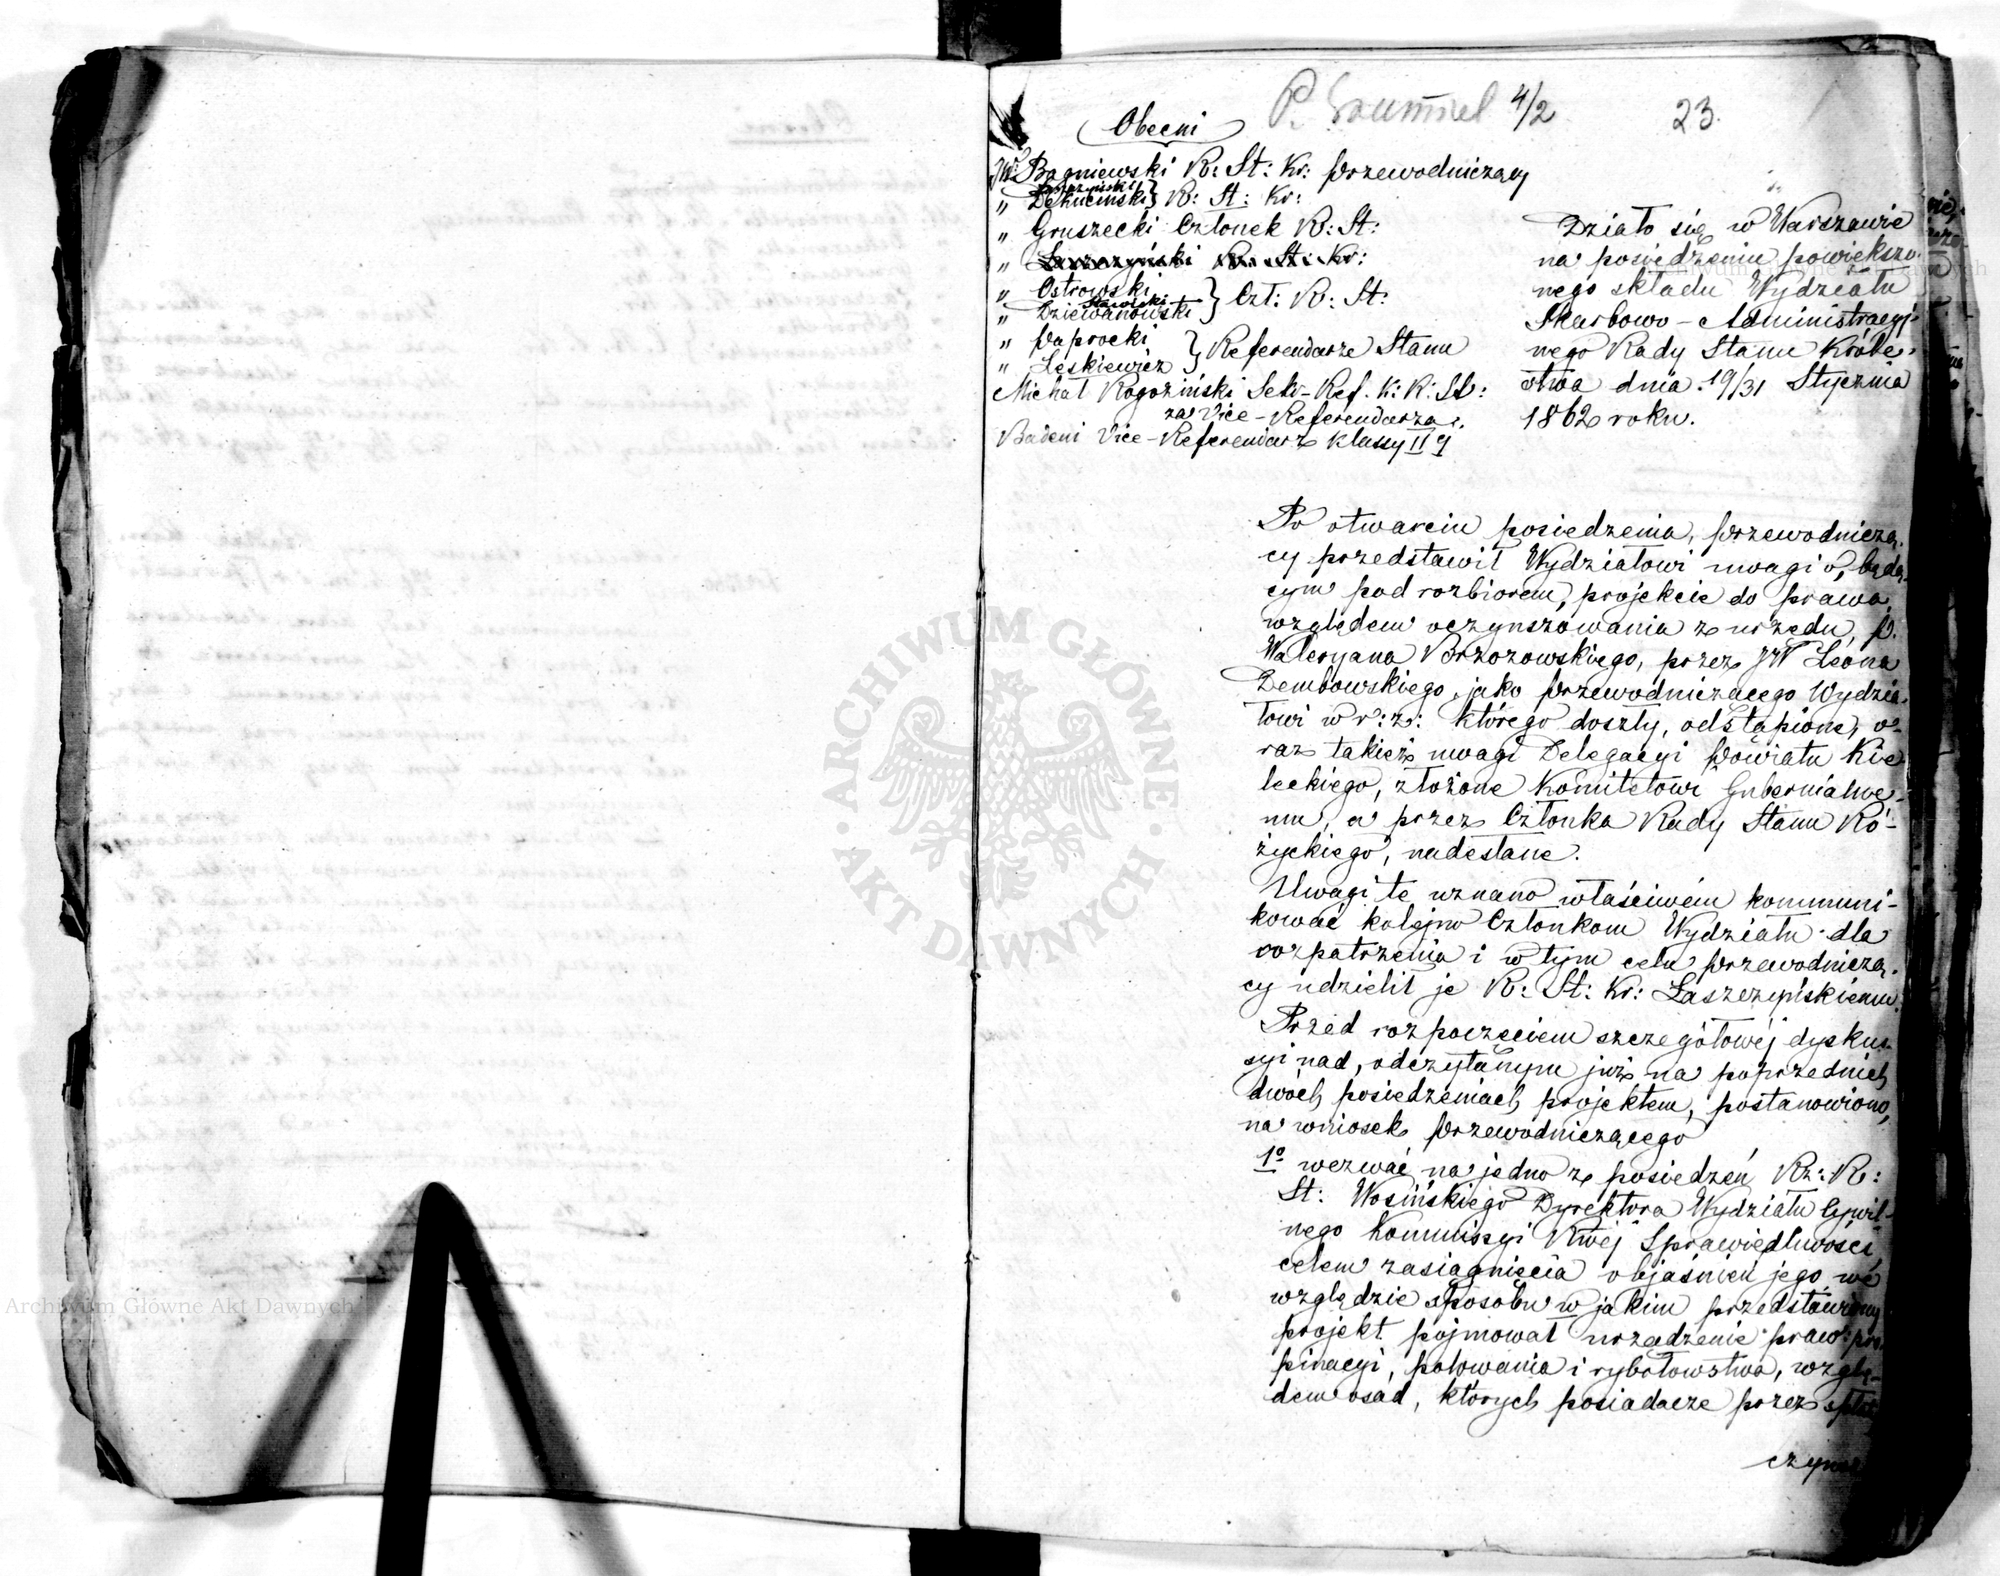 4/2
23.
Obecni
JW Bagniewski R: St: Kr: Przewodniczący
" Łaszczyński
" Dekuciński } R: St: Kr:
" Gruszecki Członek R: St:
" Łaszczyński R: St: Kr:
" Ostrowski
Sławiski
" Dziewanowski } Czł: R: St:
" Paprocki
" Leskiewicz } Referendarze Stanu
Michał Rogoziński Sekr-Ref. K: R: St:
za Vice-Referendarza.
Badeni Vice-Referendarz klassy II
Działo się w Warszawie
na posiedzeniu powiększo-
nego składu Wydziału
Skarbowo-Administracyj-
nego Rady Stanu Króle-
stwa dnia 19/31 Stycznia
1862 roku.
Po otwarciu posiedzenia, Przewodniczą-
cy przedstawił Wydziałowi uwagi o, będą-
cym pod rozbiorem, projekcie do prawa,
względem oczynszowania z urzędu, P.
Waleryana Brzozowskiego, przez JW Leona
Dembowskiego, jako Przewodniczącego Wydzia-
łowi w r: z: którego doszły, odstąpione, o-
raz takież uwagi Delegacyi Powiatu Kie-
leckiego, złożone Komitetowi Gubernialne-
mu, a przez Członka Rady Stanu Ró-
życkiego, nadesłane.
Uwagi te uznano właściwém kommuni-
kować kolejno Członkom Wydziału dla
rozpatrzenia i w tym celu Przewodniczą-
cy udzielił je R: St: Kr: Łaszczyńskiemu.
Przed rozpoczęciem szczegółowéj dyskus-
syi nad, odczytanym już na poprzednich
dwóch posiedzeniach projektem, postanowiono,
na wniosek Przewodniczącego
1º wezwać na jedno z posiedzeń Rz: R:
St: Wosińskiego Dyrektora Wydziału Cywil-
nego Kommissyi Rwéj Sprawiedliwości,
celem zasiągnięcia objaśnień jego we
względzie sposobu w jakim przedstawiony
projekt pojmował urządzenie praw pro-
pinacyi, polowania i rybołowstwa, wzglę-
dem osad, których posiadacze przez